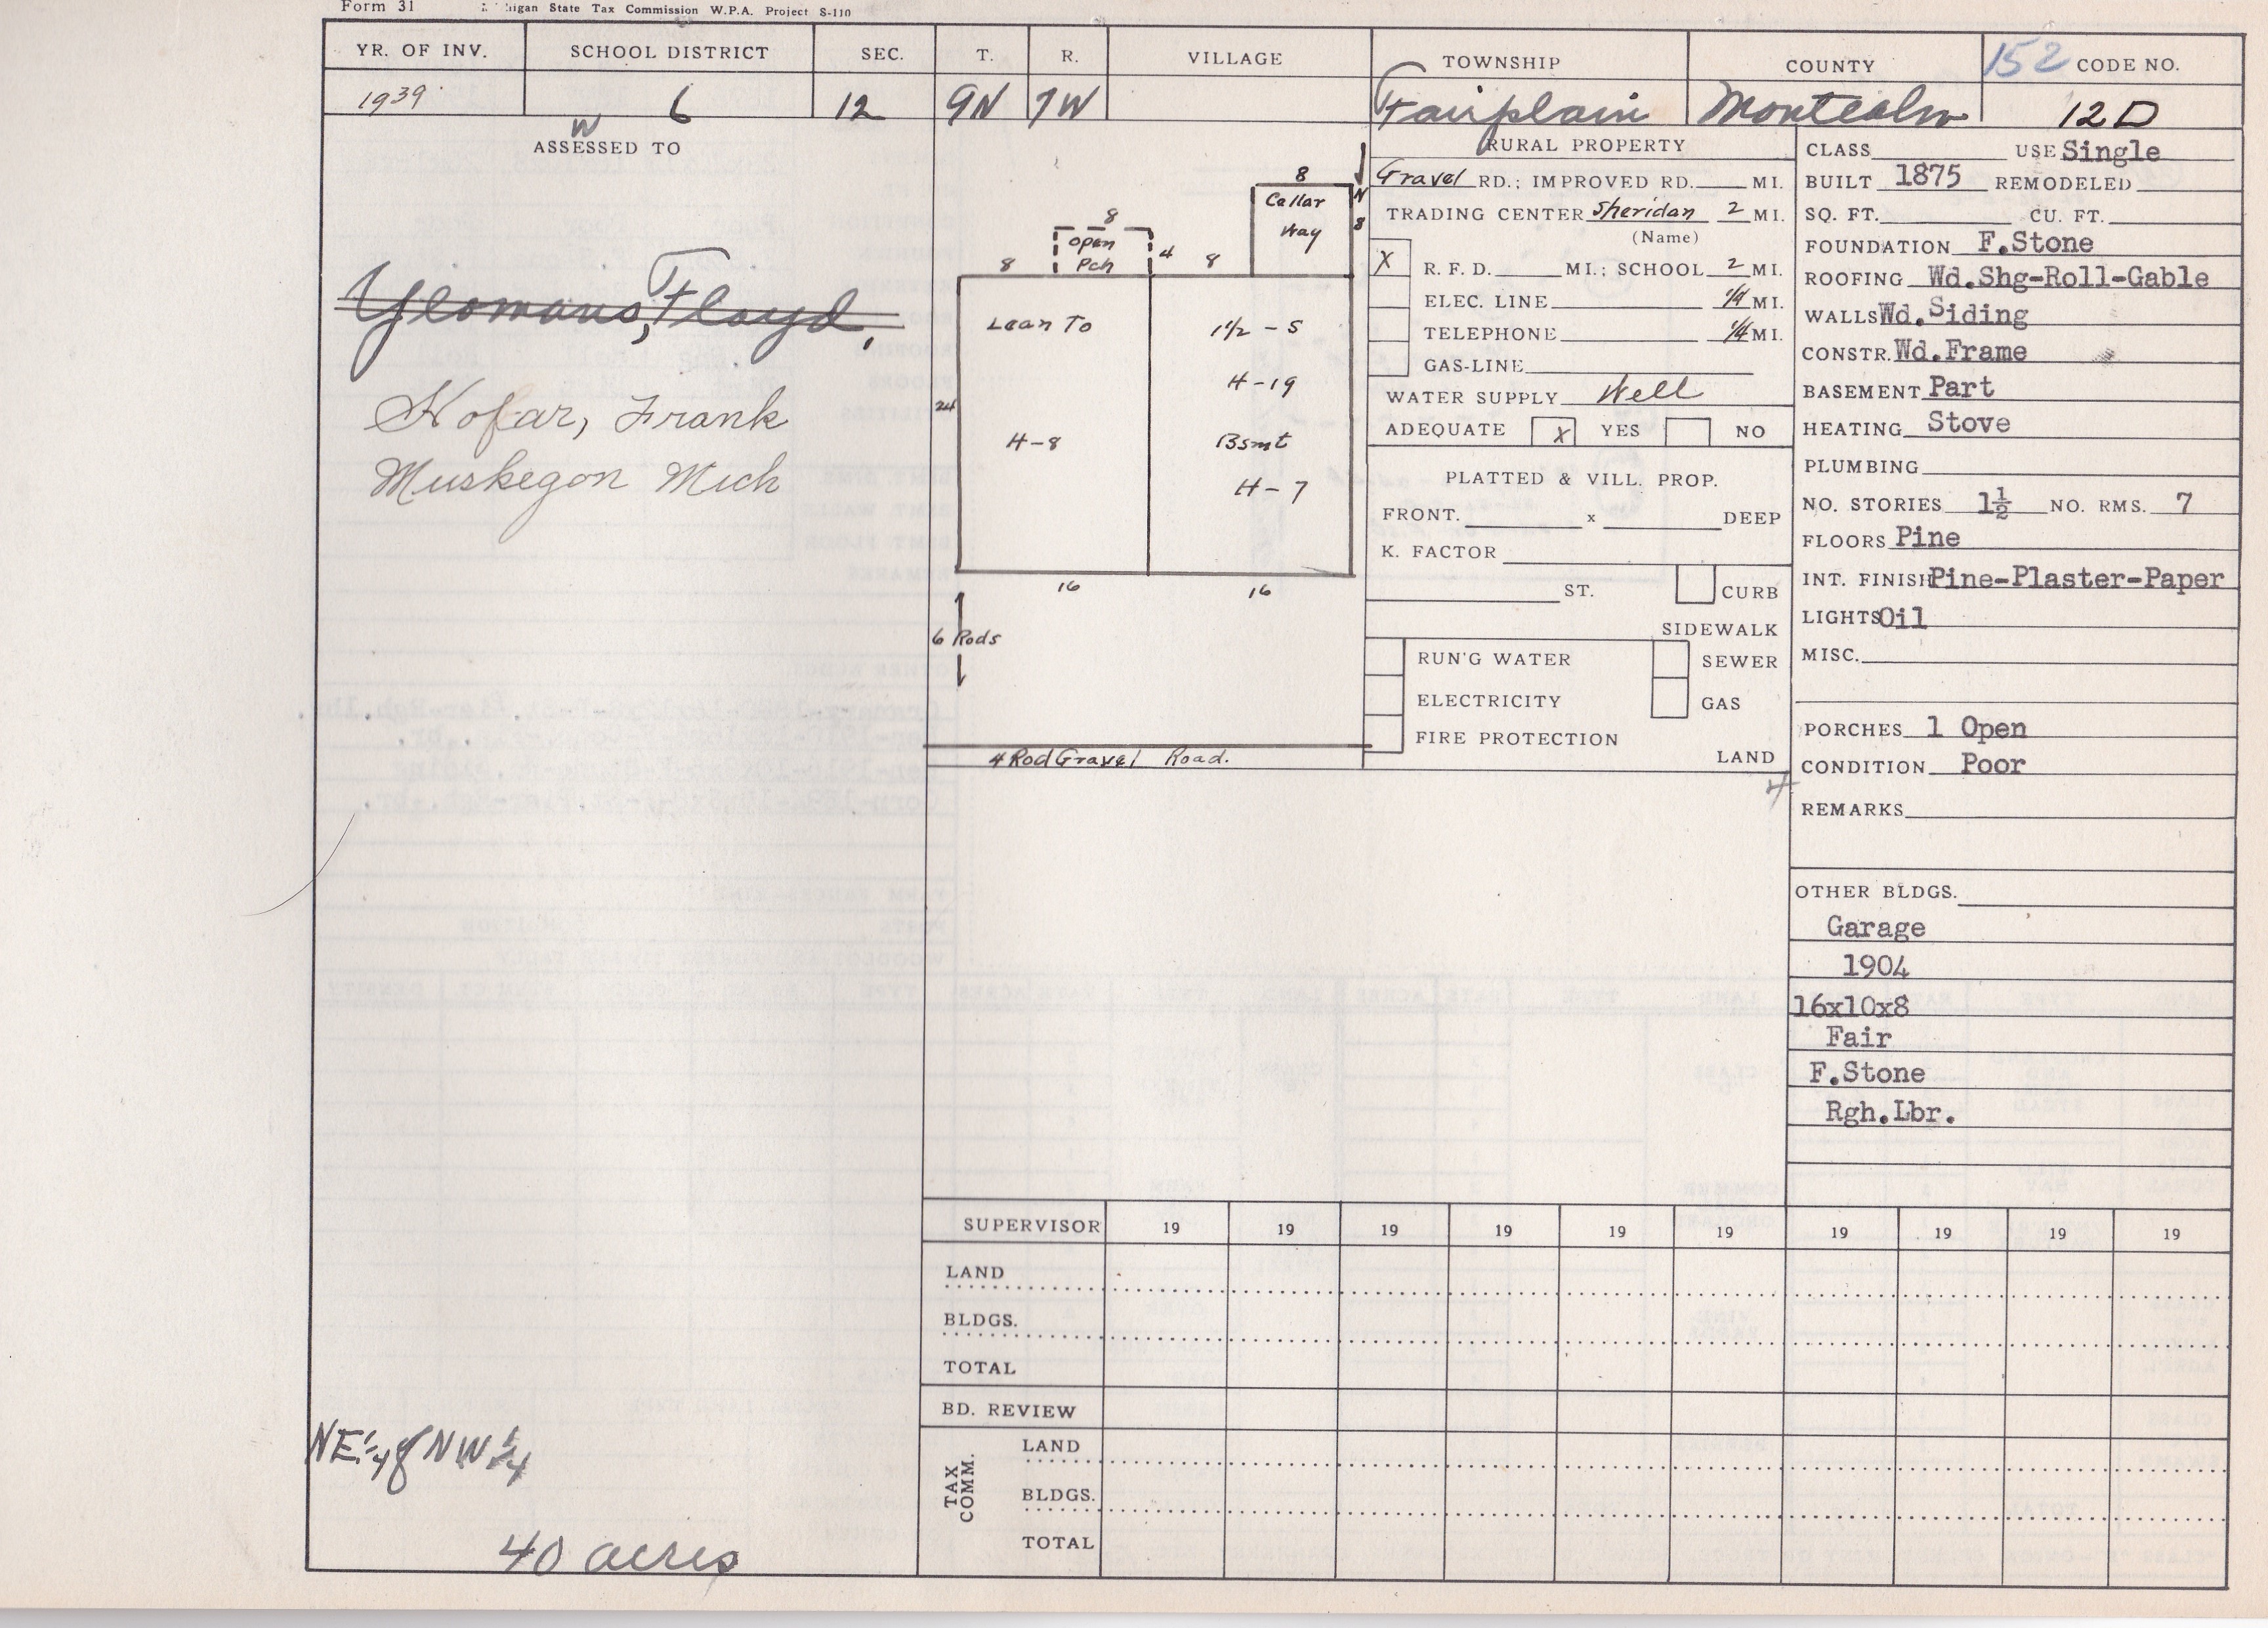 Form 31 Michigan State Tax Commission W.P.A. Project S-110
YR. OF INV. SCHOOL DISTRICT SEC. T. R. VILLAGE TOWNSHIP COUNTY 152 CODE NO.
1939 6 12 9N 7W Fairplain Montcalm 12 D
W
ASSESSED TO
Yeomans, Floyd,
Kofar, Frank
Muskegon Mich
NE 1/4 of NW 1/4
40 acres
8
Cellar
Way
N
8
8
open
Pch
4
8
8
Lean To
1½ - S
H-19
24
H-8
Bsmt
H-7
16
16
6 Rods
4 Rod Gravel Road.
RURAL PROPERTY
Gravel RD.; IMPROVED RD. MI.
TRADING CENTER Sheridan 2 MI.
(Name)
X R. F. D. MI.; SCHOOL 2 MI.
ELEC. LINE 1/4 MI.
TELEPHONE 1/4 MI.
GAS-LINE
WATER SUPPLY Well
ADEQUATE X YES NO
PLATTED & VILL. PROP.
FRONT. x DEEP
K. FACTOR
ST. CURB
SIDEWALK
RUN'G WATER SEWER
ELECTRICITY GAS
FIRE PROTECTION
LAND
4
CLASS USE Single
BUILT 1875 REMODELED
SQ. FT. CU. FT.
FOUNDATION F.Stone
ROOFING Wd.Shg-Roll-Gable
WALLS Wd.Siding
CONSTR. Wd.Frame
BASEMENT Part
HEATING Stove
PLUMBING
NO. STORIES 1½ NO. RMS. 7
FLOORS Pine
INT. FINISH Pine-Plaster-Paper
LIGHTS Oil
MISC.
PORCHES 1 Open
CONDITION Poor
REMARKS
OTHER BLDGS.
Garage
1904
16x10x8
Fair
F.Stone
Rgh.Lbr.
SUPERVISOR 19 19 19 19 19 19 19 19 19 19
LAND
BLDGS.
TOTAL
BD. REVIEW
TAX COMM.
LAND
BLDGS.
TOTAL